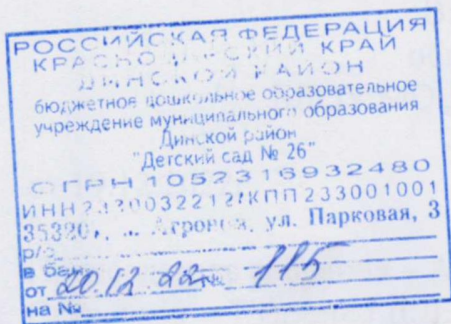 РОССИЙСКАЯ ФЕДЕРАЦИЯ
КРАСНОДАРСКИЙ КРАЙ
ДИНСКОЙ РАЙОН
бюджетное дошкольное образовательное
учреждение муниципального образования
Динской район
"Детский сад № 26"
ОГРН 1052316932480
ИНН 2330032212/КПП 233001001
ул. Парковая, 3
р/с
в бан
от 20.12 22 № 115
на №